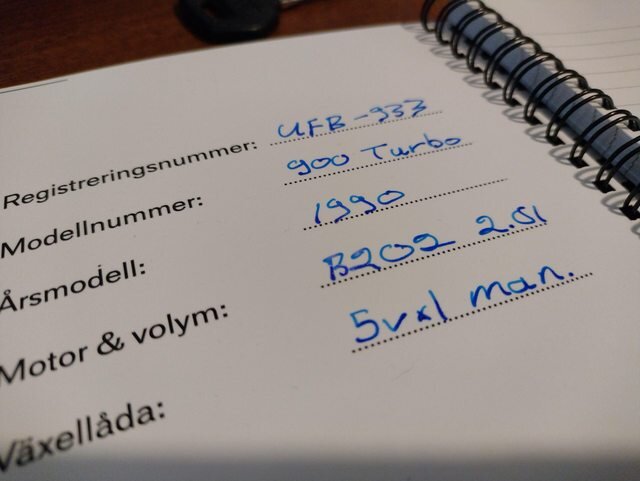 Registreringsnummer: UFB-933
Modellnummer: 900 Turbo
Årsmodell: 1990
Motor & volym: B202 2.0l
Växellåda: 5vxl man.